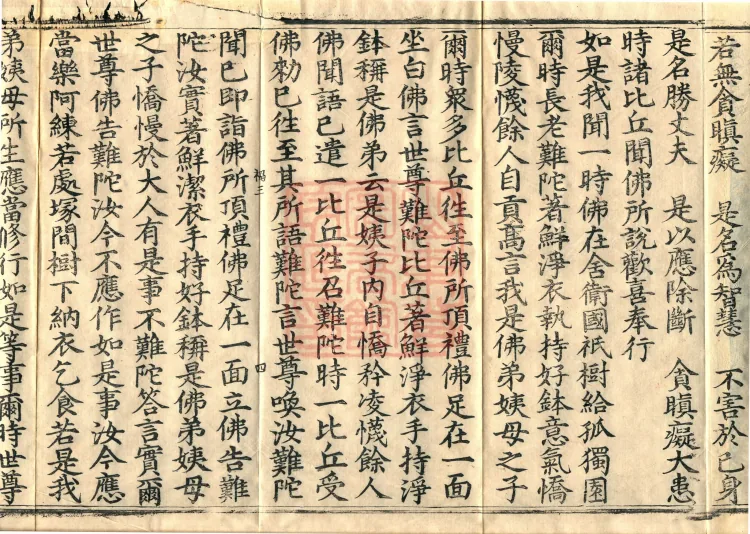 若無貪瞋癡　是名為智慧　不害於已身
是名勝丈夫　是以應除斷　貪瞋癡大患
時諸比丘聞佛所說歡喜奉行
如是我聞一時佛在舍衛國祇樹給孤獨園
爾時長老難陀著鮮淨衣執持好鉢意氣憍
慢陵懱餘人自貢高言我是佛弟姨母之子
爾時衆多比丘往至佛所頂禮佛足在一面
坐白佛言世尊難陀比丘著鮮淨衣手持淨
鉢稱是佛弟云是姨子內自憍矜凌懱餘人
佛聞語已遣一比丘往召難陀時一比丘受
佛勑已往至其所語難陀言世尊喚汝難陀
福三　四
聞已即詣佛所頂禮佛足在一面立佛告難
陀汝實著鮮潔衣手持好鉢稱是佛弟姨母
之子憍慢於大人有是事不難陀答言實爾
世尊佛告難陀汝今不應作如是事汝今應
當樂阿練若處塚間樹下納衣乞食若是我
弟姨母所生應當修行如是等事爾時世尊